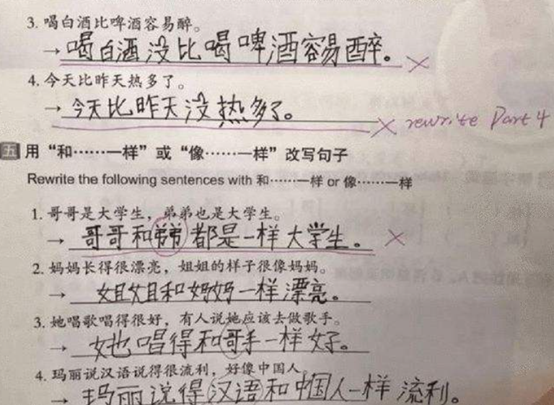 3. 喝白酒比啤酒容易醉。
→ 喝白酒没比喝啤酒容易醉。 ×
4. 今天比昨天热多了。
→ 今天比昨天没热多了。 × rewrite Part 4
五 用“和……一样”或“像……一样”改写句子
Rewrite the following sentences with 和……一样 or 像……一样
1. 哥哥是大学生，弟弟也是大学生。
→ 哥哥和爷爷都是一样大学生。 ×
2. 妈妈长得很漂亮，姐姐的样子很像妈妈。
→ 姐姐和妈妈一样漂亮。
3. 她唱歌唱得很好，有人说她应该去做歌手。
→ 她唱得和歌手一样好。
4. 玛丽说汉语说得很流利，好像中国人。
→ 玛丽说得汉语和中国人一样流利。